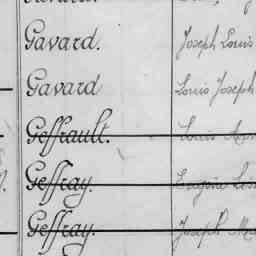 Gavard. Joseph Louis
Gavard Louis Joseph
Geffrault. Louis
Geffray. Eugène
Geffray. Joseph